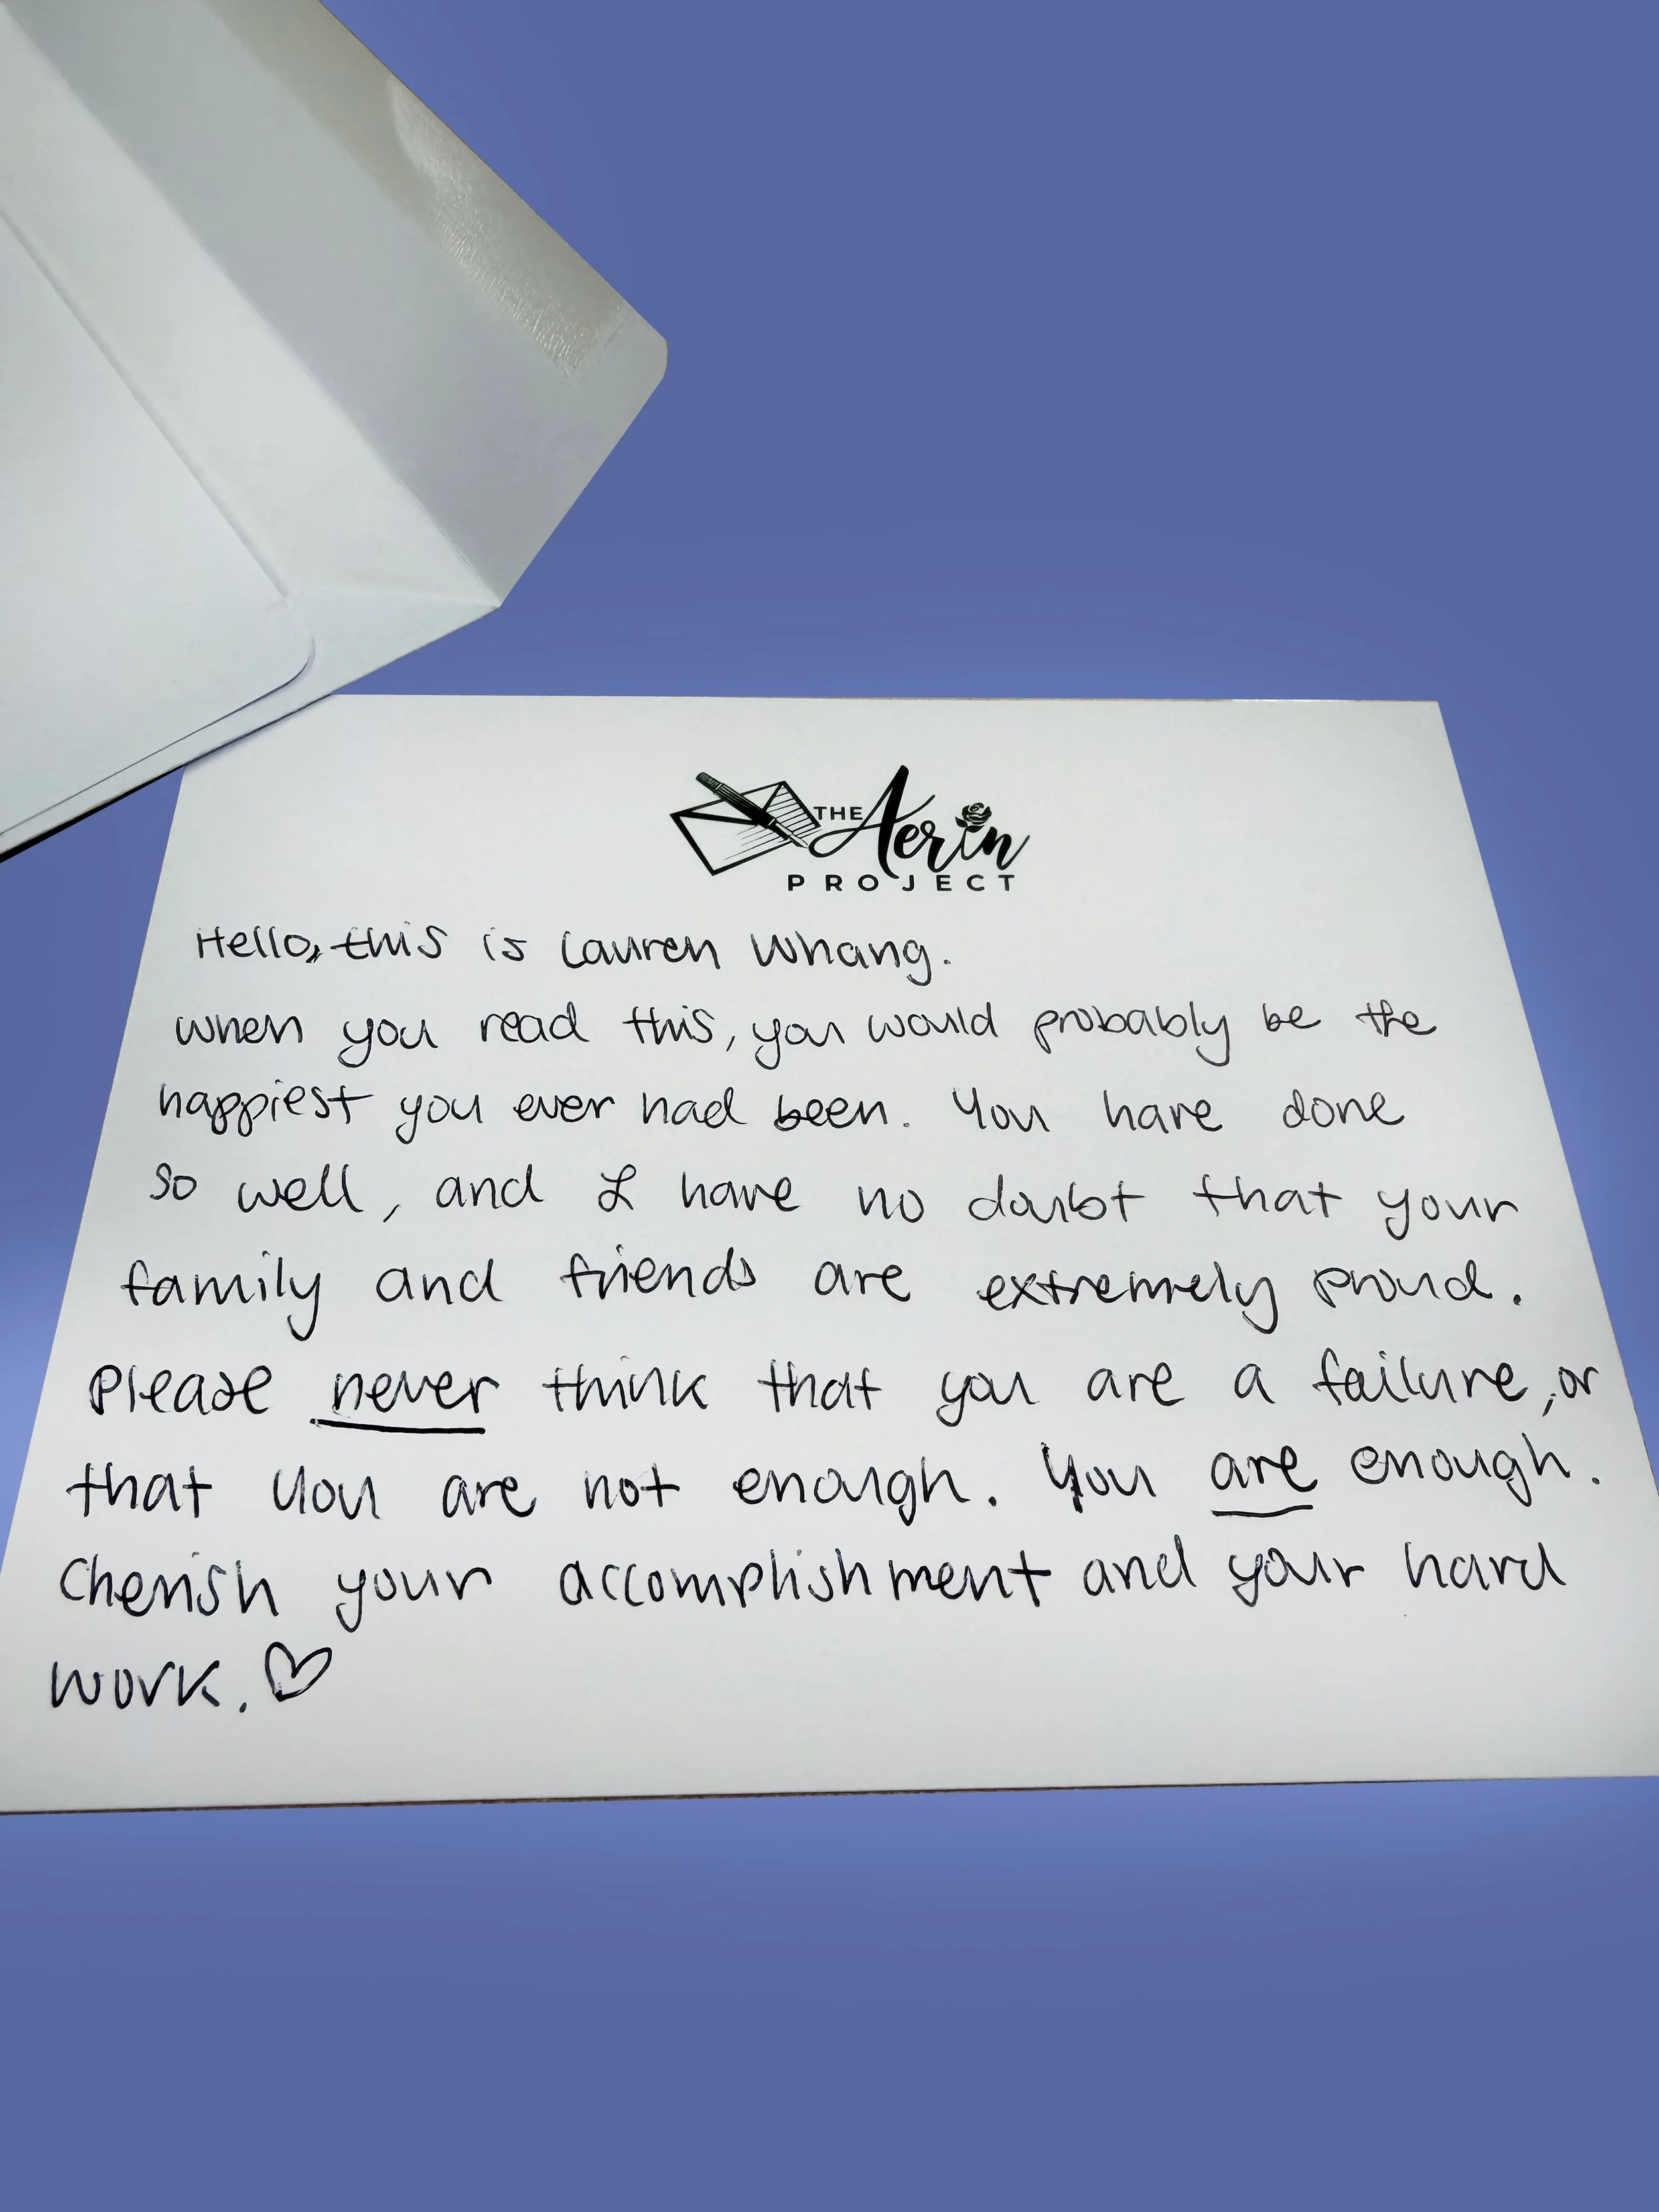 THE Aerin
PROJECT
Hello, this is Lauren Whang.
When you read this, you would probably be the
happiest you ever had been. You have done
so well, and I have no doubt that your
family and friends are extremely proud.
Please never think that you are a failure, or
that you are not enough. You are enough.
Cherish your accomplishment and your hard
work. ♡